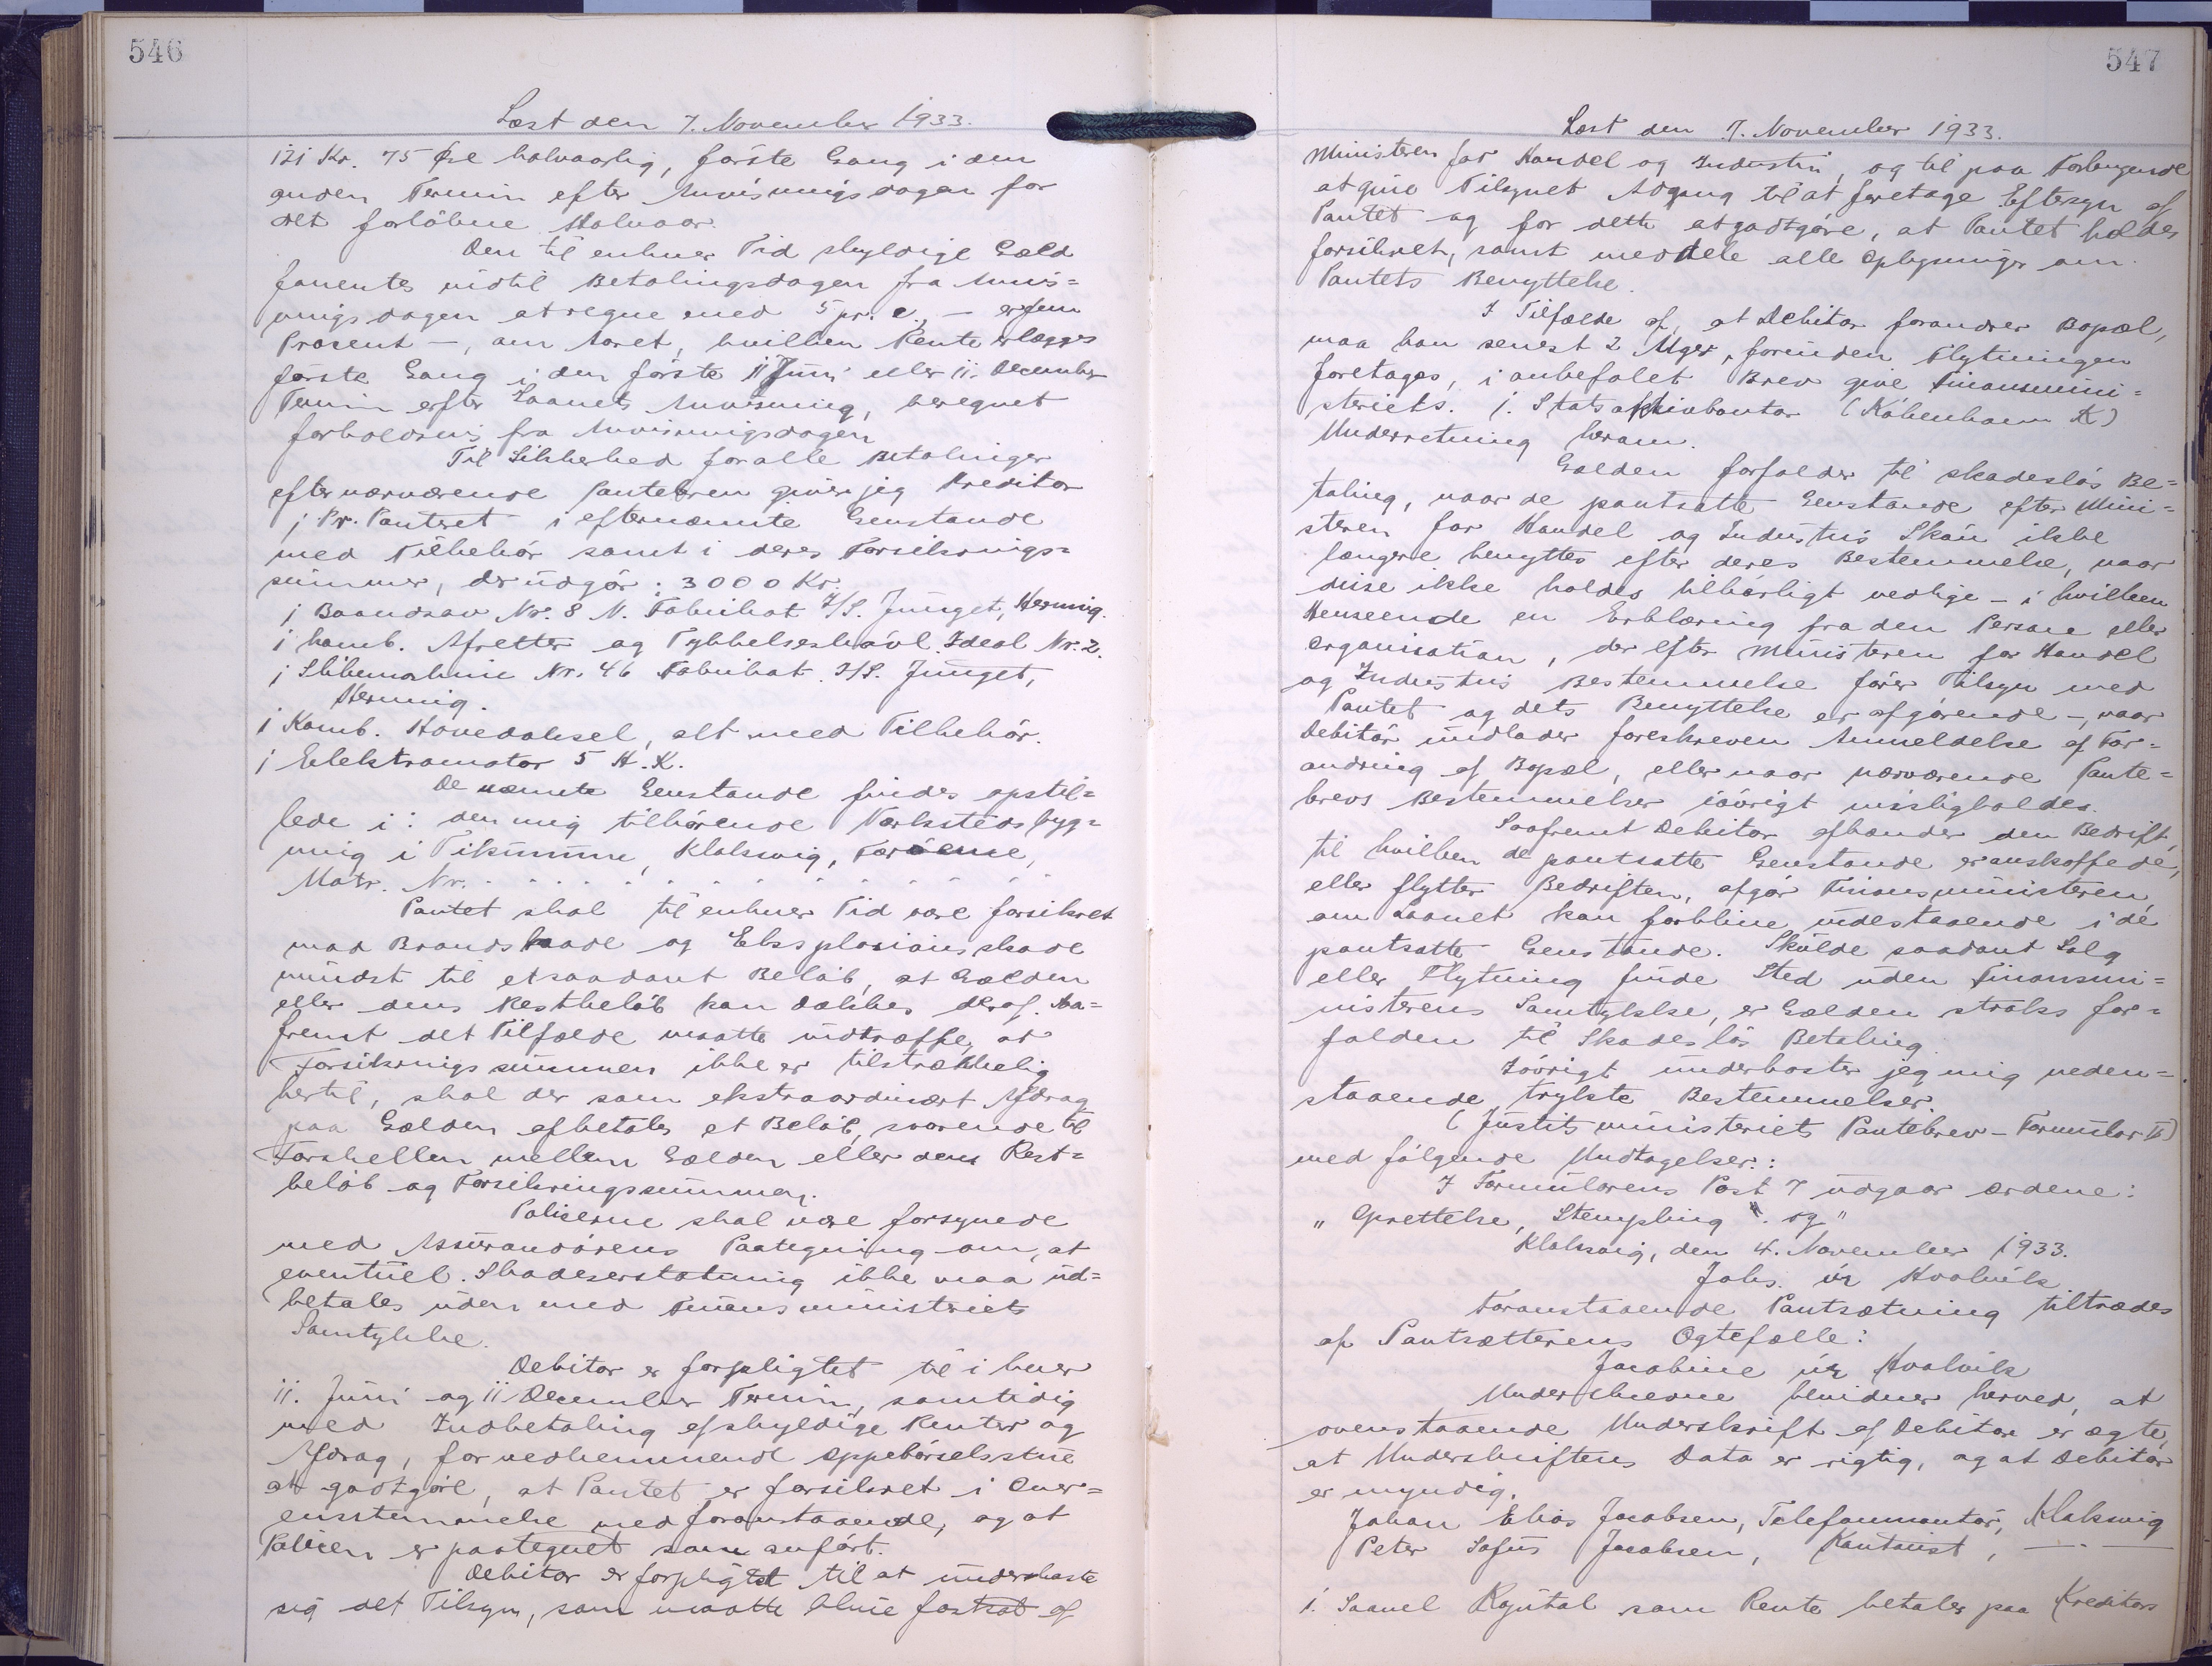 546
Læst den 7. November 1933.
121 Kr. 75 Øre halvaarlig, første Gang i den
anden Termin efter Anvisningsdagen for
det forløbne Halvaar.
Den til enhver Tid skyldige Gæld
forrentes indtil Betalingsdagen fra Anvis=
ningsdagen at regne med 5 pr. c., – er fem
Procent –, om Aaret, hvilken Rente erlægges
første Gang i den første 11 Juni eller 11. December
Termin efter Laanets Anvisning, beregnet
forholdsvis fra Anvisningsdagen
Til Sikkerhed for alle Betalinger
efter nærværende Pantebrev giver jeg Kreditor
1 Pr. Panteret i efternævnte Genstande
med Tilbehør samt i deres Forsikrings=
summer, der udgør: 3000 Kr.
1 Baandsav Nr. 8 N. Fabrikat I/S. Junget, Herning.
1 komb. Afretter og Tykkelseshøvl. Ideal Nr. 2.
1 Slibemaskine Nr. 46 Fabrikat I/S. Junget,
Herning.
1 Komb. Hovedaksel, alt med Tilbehør.
1 Elektromotor 5 H.K.
De nævnte Genstande findes opstil=
lede i: den mig tilhørende Værkstedsbyg=
ning i Vikunum, Klaksvig, Færøerne,
Matr. Nr. . . . . . . . . . . . . .
Pantet skal til enhver Tid være forsikret
mod Brandskade og Eksplosionsskade
mindst til et saadant Beløb, at Gælden
eller dens Restbeløb kan dækkes deraf. Saa=
fremt det Tilfælde maatte indtræffe, at
Forsikringssummen ikke er tilstrækkelig
hertil, skal der som ekstraordinært Afdrag
paa Gælden afbetales et Beløb, svarende til
Forskellen mellem Gælden eller dens Rest=
beløb og Forsikringssummen.
Policerne skal være forsynede
med Assurandørens Paategning om, at
eventuel. Skadeserstatning ikke maa ud=
betales uden med Finansministeriets
Samtykke.
Debitor er forpligtet til i hver
11. Juni og 11 December Termin, samtidig
med Indbetaling af skyldige Renter og
Afdrag, for vedkommende Oppebørselsstue
at godtgøre, at Pantet er forsikret i Over=
ensstemmelse med foranstaaende, og at
Policen er paategnet som anført.
Debitor er forpligtet til at underkaste
sig det Tilsyn, som maatte blive fastsat af
547
Læst den 7. November 1933.
Ministeren for Handel og Industri, og til paa Forlangende
at give Tilsynet Adgang til at foretage Eftersyn af
Pantet og for dette at godtgøre, at Pantet holdes
forsikret, samt meddele alle Oplysninger om
Pantets Benyttelse.
I Tilfælde af, at Debitor forandrer Bopæl,
maa han senest 2 Uger, forinden Flytningen
foretages, i anbefalet Brev give Finansmini=
steriets. 1. Statsaktivkontor (København K)
Underretning herom.
Gælden forfalder til skadesløs Be=
taling, naar de pantsatte Genstande efter Mini=
steren for Handel og Industris Skøn ikke
længere benyttes efter deres Bestemmelse, naar
disse ikke holdes tilbørligt vedlige – i hvilken
Henseende en Erklæring fra den Person eller
Organisation, der efter Ministeren for Handel
og Industris Bestemmelse fører Tilsyn med
Pantet og dets Benyttelse er afgørende –, naar
Debitor undlader foreskreven Anmeldelse af For=
andring af Bopæl, eller naar nærværende Pante=
brevs Bestemmelser iøvrigt misligholdes.
Saafremt Debitor afhænder den Bedrift,
til hvilken de pantsatte Genstande er anskaffede,
eller flytter Bedriften, afgør Finansministeren,
om Laanet kan forblive indestaaende i de
pantsatte Genstande. Skulde saadant Salg
eller Flytning finde Sted uden Finansmi=
nisterens Samtykke, er Gælden straks for=
falden til Skadesløs Betaling.
Iøvrigt underkaster jeg mig neden=
staaende trykte Bestemmelser.
(Justitsministeriets Pantebrev – Formular II)
med følgende Undtagelser.:
I Formularens Post 7 udgaar ordene:
" Oprettelse, Stempling . og "
Klaksvig, den 4. November 1933.
Johs. úr Hvalvík
Foranstaaende Pantsætning tiltrædes
af Pantsætterens Ægtefælle:
Jacobine úr Hvalvík
Undertegnede bevidner herved, at
ovenstaaende Underskrift af Debitor er ægte,
at Underskriftens Data er rigtig, og at Debitor
er myndig.
Johan Elias Jacobsen, Telefonmontør, Klaksvig
Peter Sofus Jacobsen, Kontorist, — . —
1. Saavel Kapital som Rente betales paa Kreditors